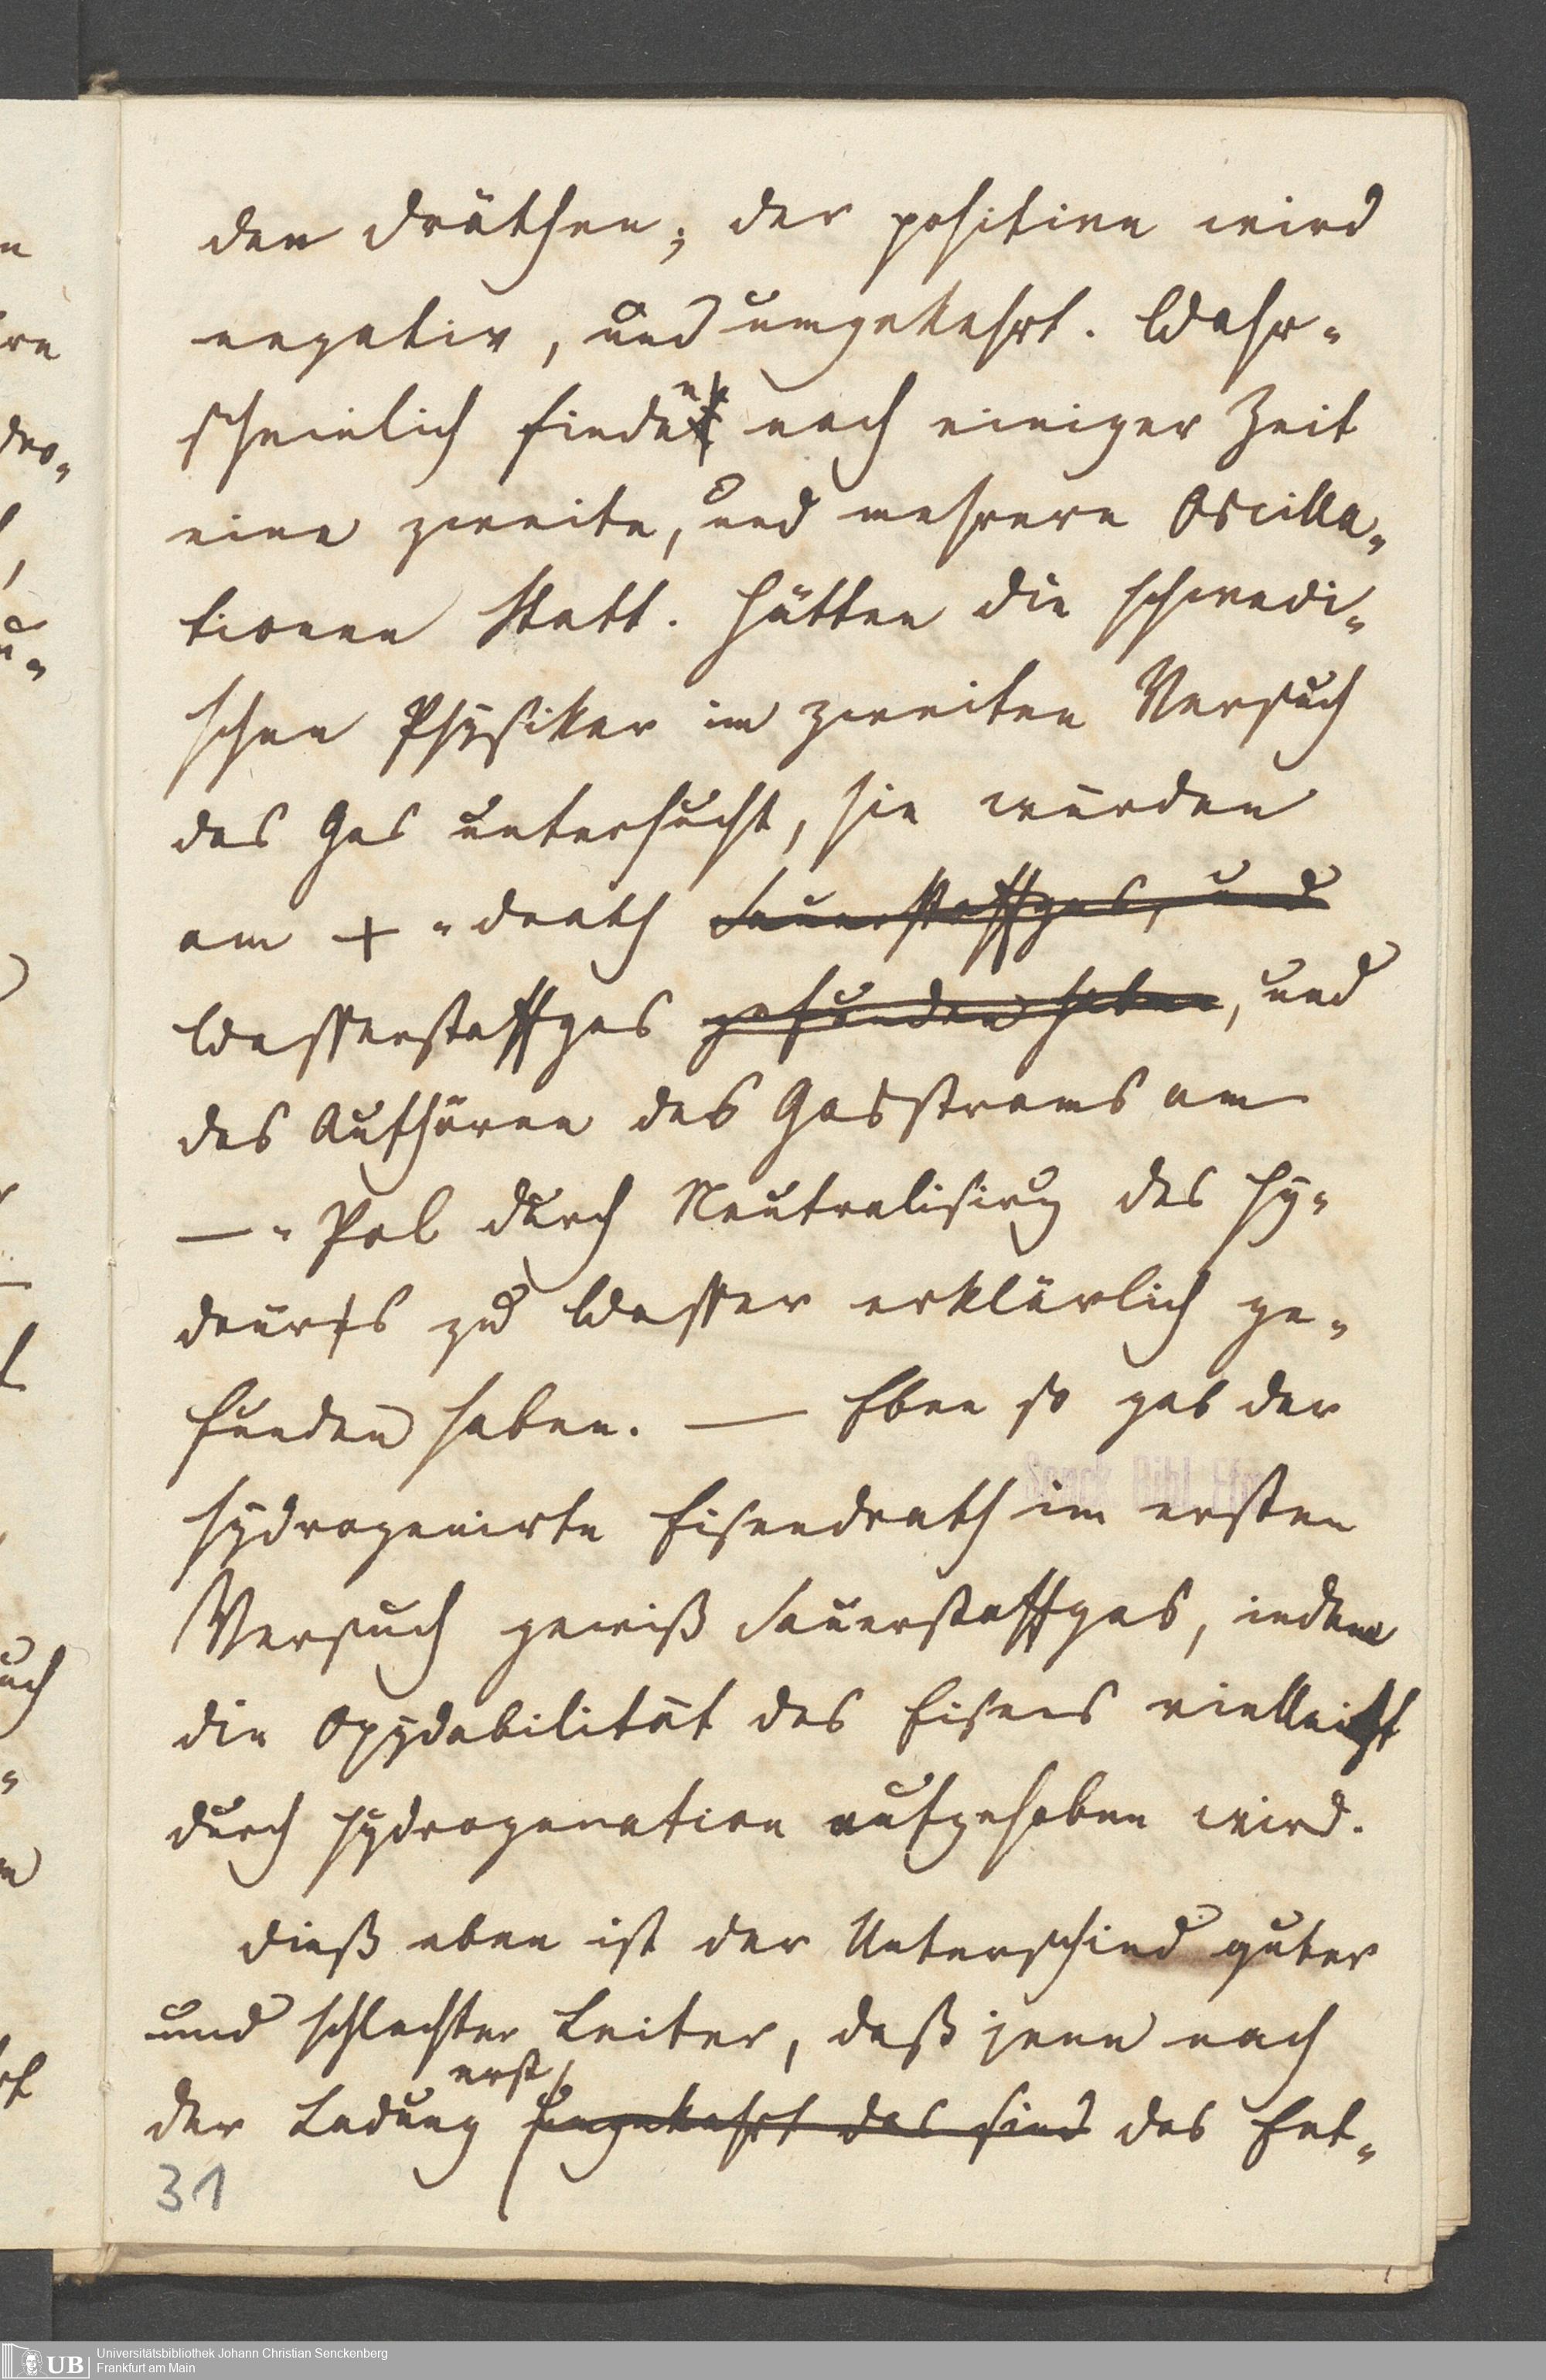 den Dräthen; der positive wird
negativ, und umgekehrt. Wahr-
scheinlich finden nach einiger Zeit
eine zweite, und mehrere Oscilla-
tionen Statt. Hätten die schwedi-
schen Physiker im zweiten Versuch
das Gas untersucht, sie würden
am + -Drath Sauerstoffgas, und
Wasserstoffgas gefunden haben, und
das Aufhören des Gasstroms am
— -Pol durch Neutralisirug des Hy-
drürs zu Wasser erklärlich ge-
funden haben. — Eben so gab der
hydrogenirte Eisendrath im ersten
Versuch gewiß Sauerstoffgas, indem
die Oxydabilität des Eisens vielleicht
durch Hydrogenation aufgehoben wird.
Dieß eben ist der Unterschied guter
und schlechter Leiter, daß jene nach
erst
der Ladung umgekehrt das sind das Ent-
31
Senck. Bibl. Ffm
UB
Universitätsbibliothek Johann Christian Senckenberg
Frankfurt am Main